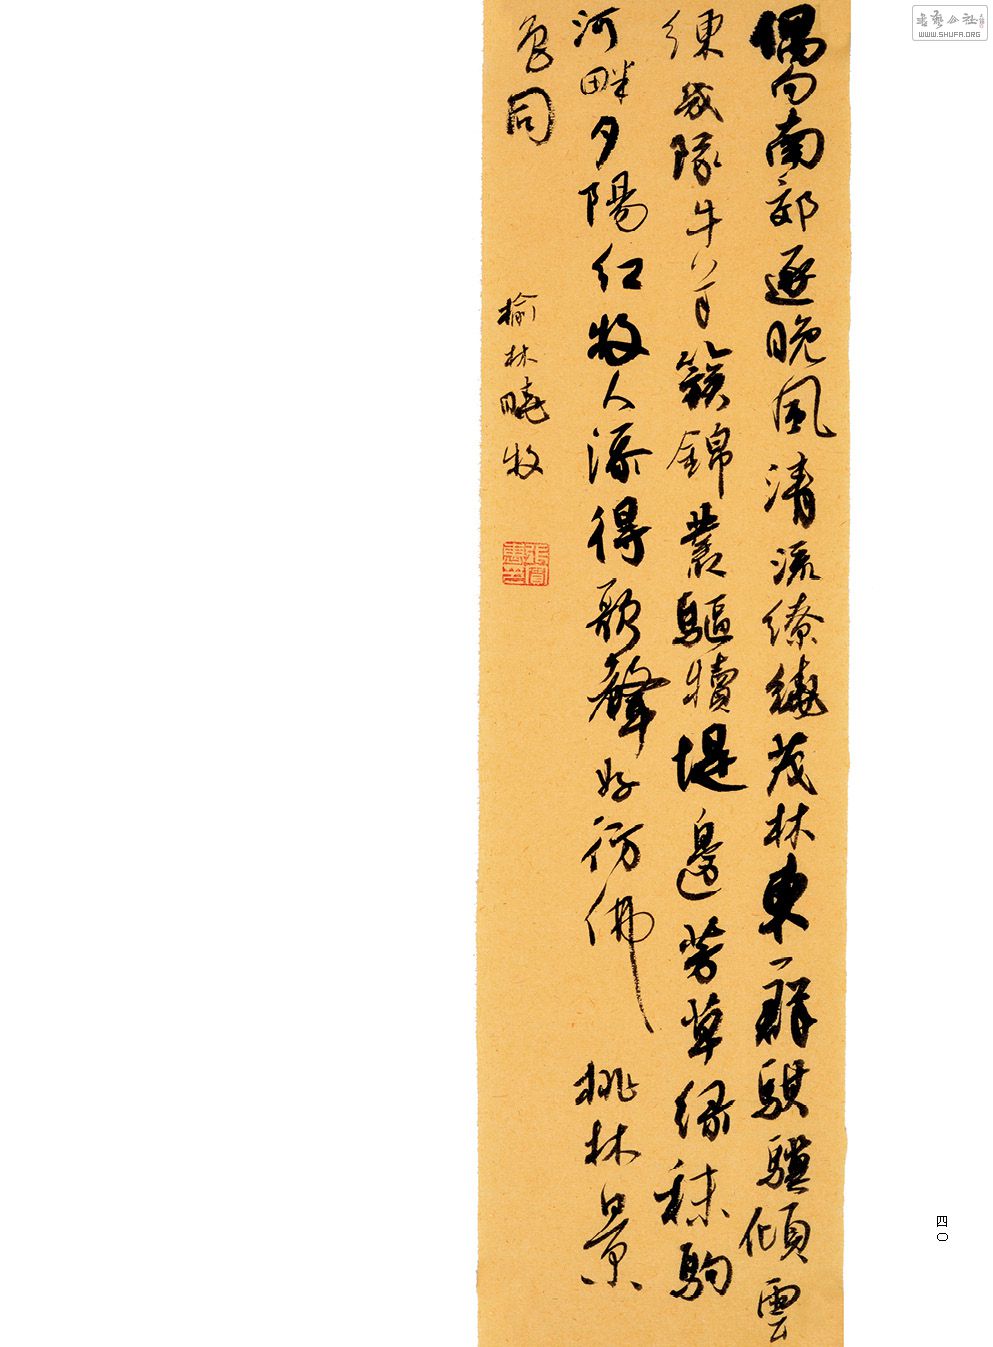 書藝公社
WWW.SHUFA.ORG
偶向南郊逐晚風清流繚繞茂林東一群騏驥傾雲
練幾隊牛羊簇錦叢驅犢堤邊芳草緑秣駒
河畔夕陽紅牧人添得歌聲好彷佛桃林景
色同
榆林曉牧
四〇